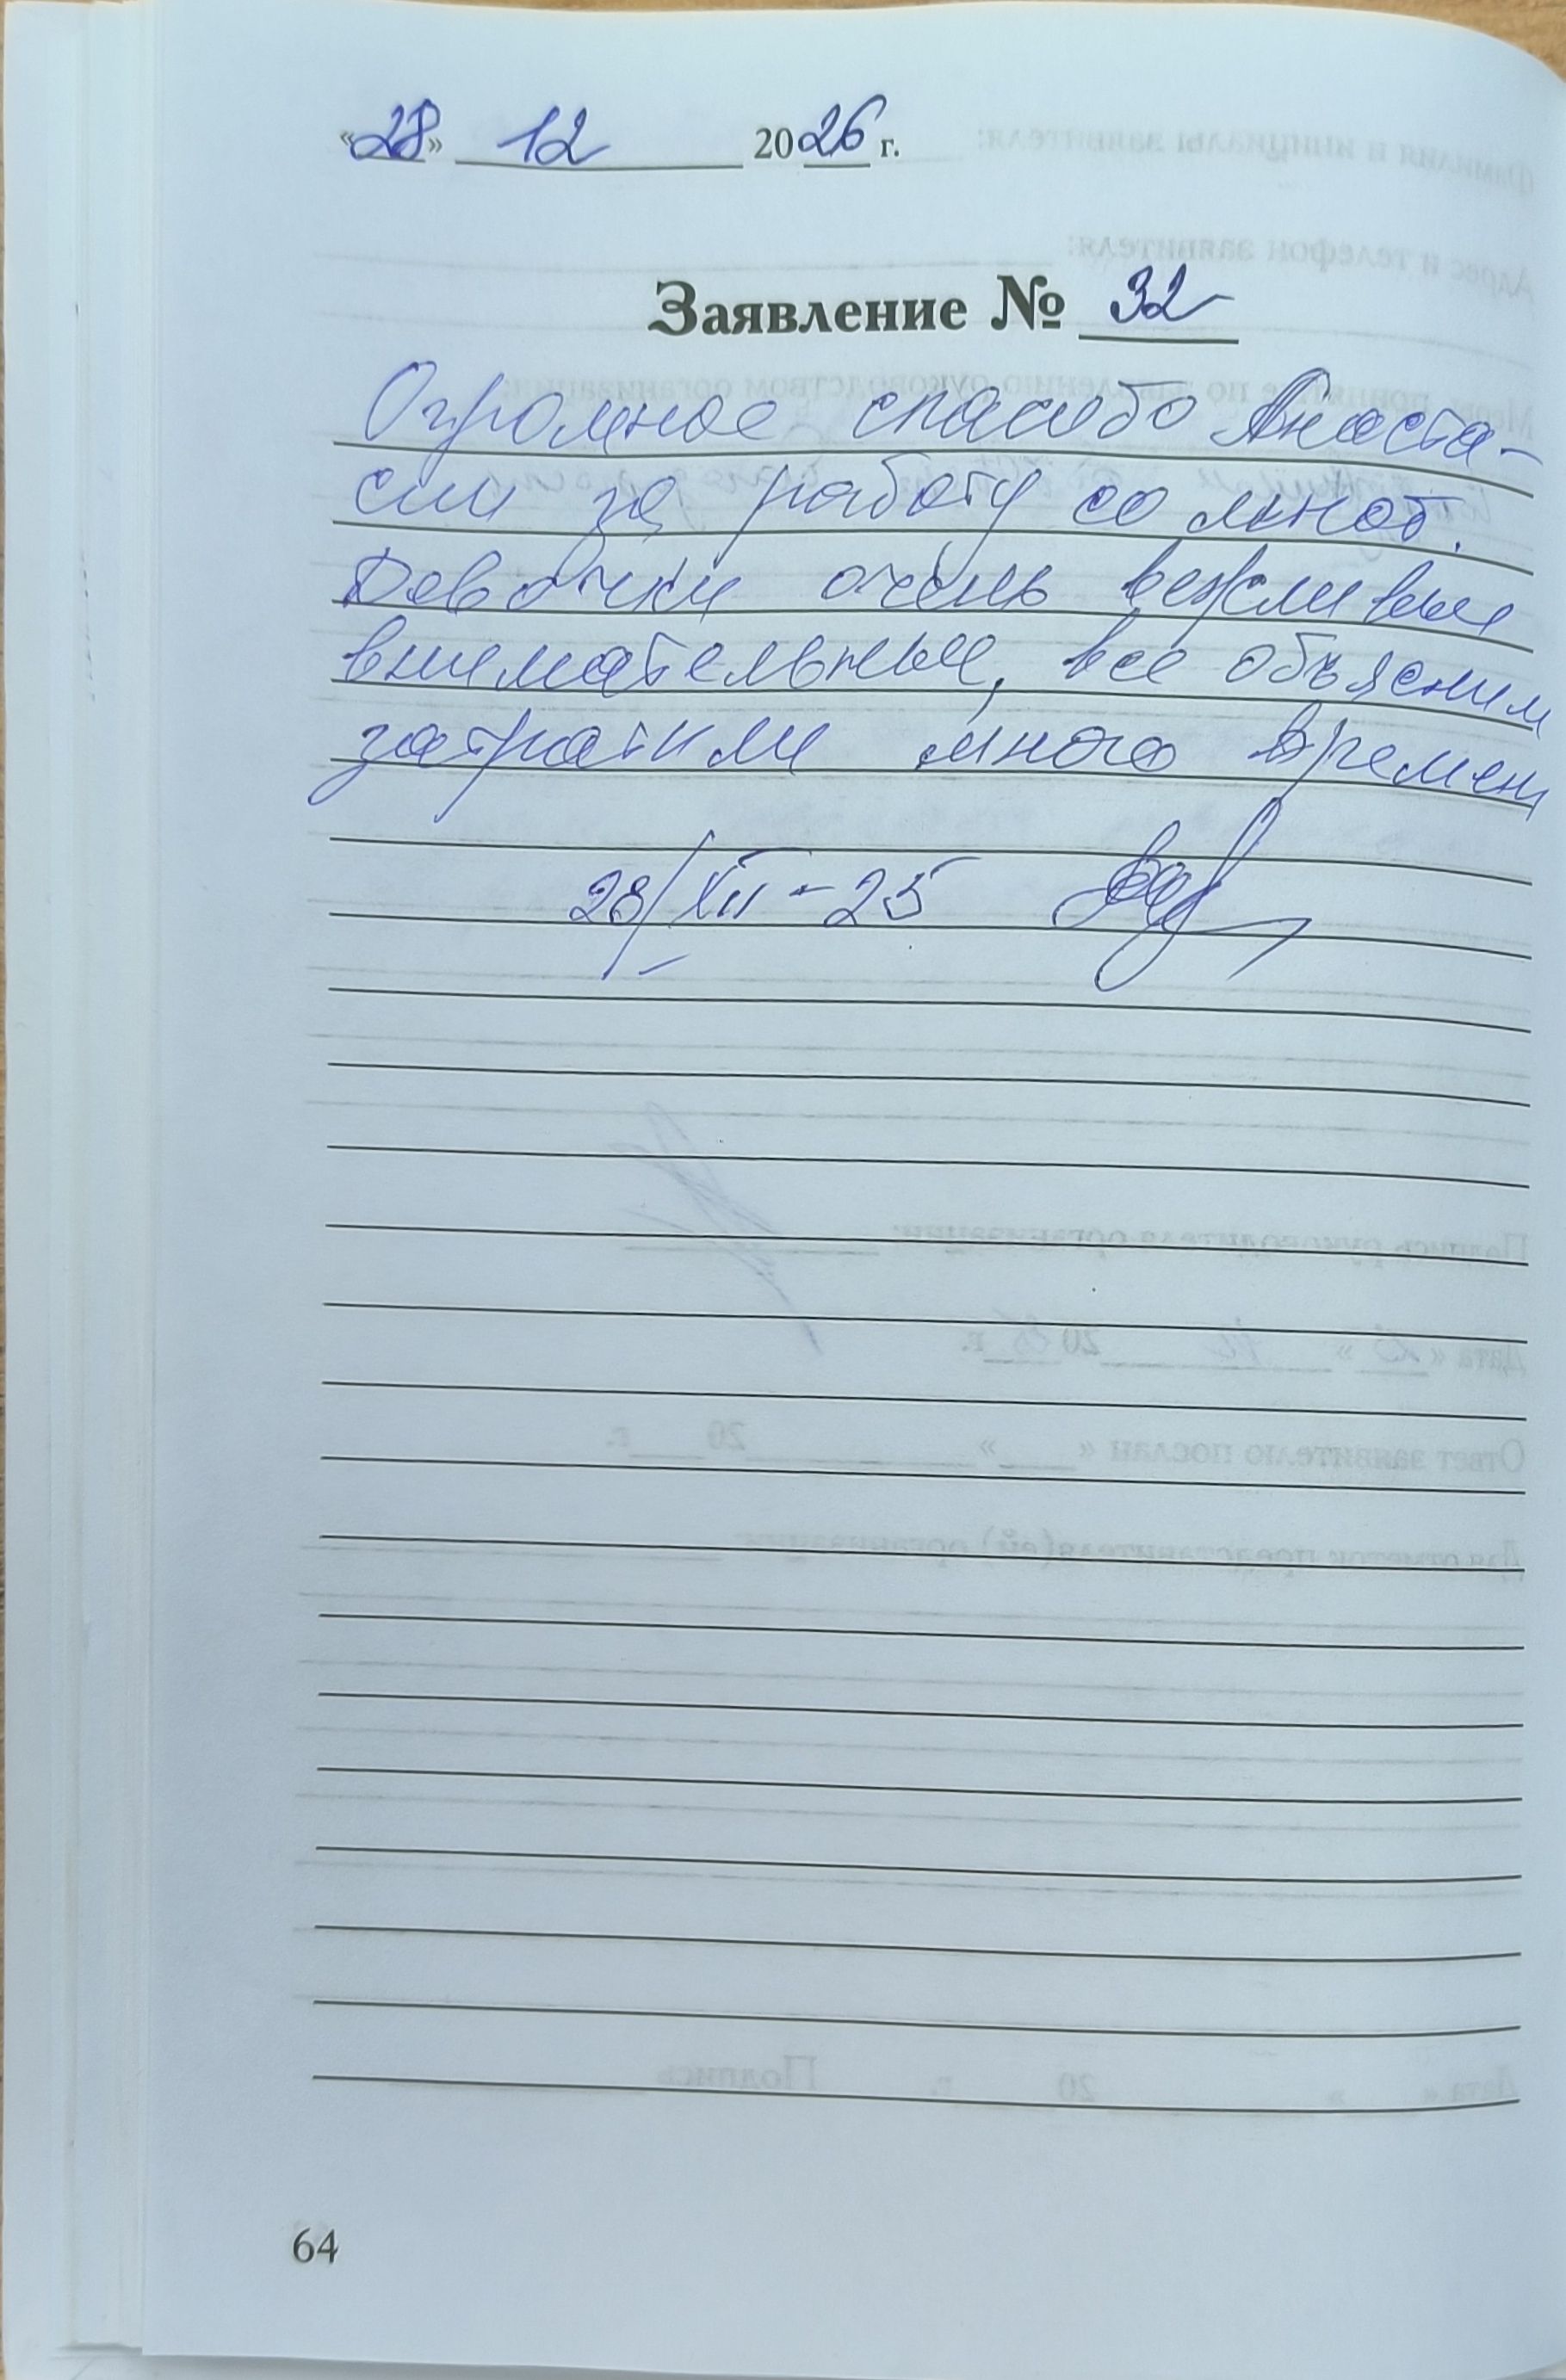 «28» 12 2026 г.
Заявление № 32
Огромное спасибо Анаста-
сии за работу со мной.
Девочки очень вежливые
внимательные, все объяснили
затратили много времени
28/XII-25
64